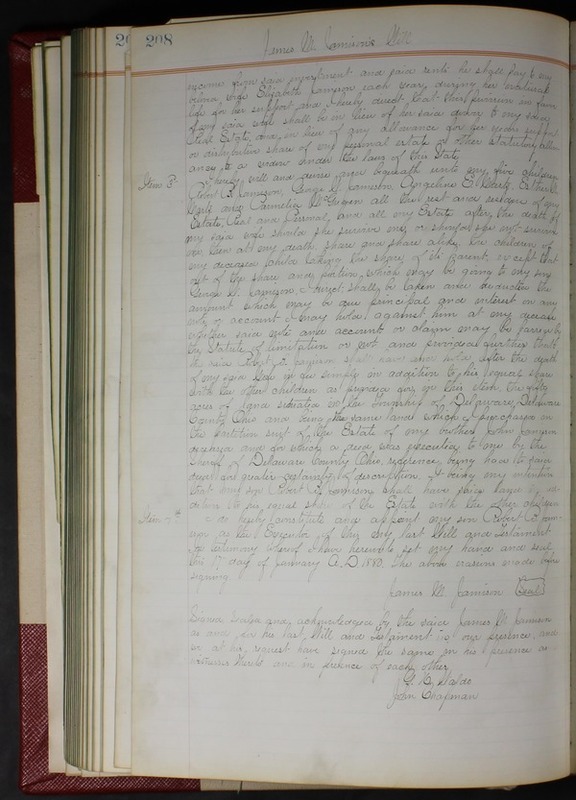 208
James M. Jamison's Will
income from said investment and said rents he shall pay to my
wife Elizabeth Jamison each year, during her natural
life for her support and I hereby direct that this provision in favor
of my said wife shall be in lieu of her said dower in my said
Real Estate, and in lieu of any allowance for her years support
or distributive share of my personal estate or other statutory allow
ance to a widow under the laws of this State,
Item 3d. I hereby will and devise and bequeath unto my five children
Robert Jamison, George Jamison, Angeline E.
and all the rest and residue of my
Estate, real and Personal, and all my Estate after the death of
my said wife should she survive me, or should she not survive
me, then at my death share and share alike, the children of
my deceased child taking the share of its parent, except that
out of the share and portion which may be going to my son
George Jamison, I direct shall be taken and deducted the
amount which may be due principal and interest on any
note or account I may hold against him at my decease
whether said note and account or claim may be barred by
the Statute of limitation or not and provided further that
my said Robert Jamison shall have and hold after the death
of my said wife in fee simple in addition to his equal share
with the other children as provided for in this item the
acres of land situated in the Township of Delaware, Delaware
County Ohio and being the same land which I purchased in
the partition suit of the Estate of my brother John Jamison
deceased and for which a deed was executed to me by the
Sheriff of Delaware County Ohio, reference being had to said
deed for greater certainty of description, it being my intention
that my son Robert Jamison shall have said land in ad-
dition to his equal share of the Estate with the other children
Item 4th. I do hereby constitute and appoint my son Robert Jami-
son as the Executor of this my last Will and Testament
In testimony whereof I have hereunto set my hand and seal
this 17 day of January A.D. 1880. The above erasure made before
signing.
James M. Jamison Seal
Signed Sealed and acknowledged by the said James M. Jamison
as and for his last Will and Testament in our presence, and
we at his request have signed the same in his presence as
witnesses thereto and in presence of each other
John Chapman